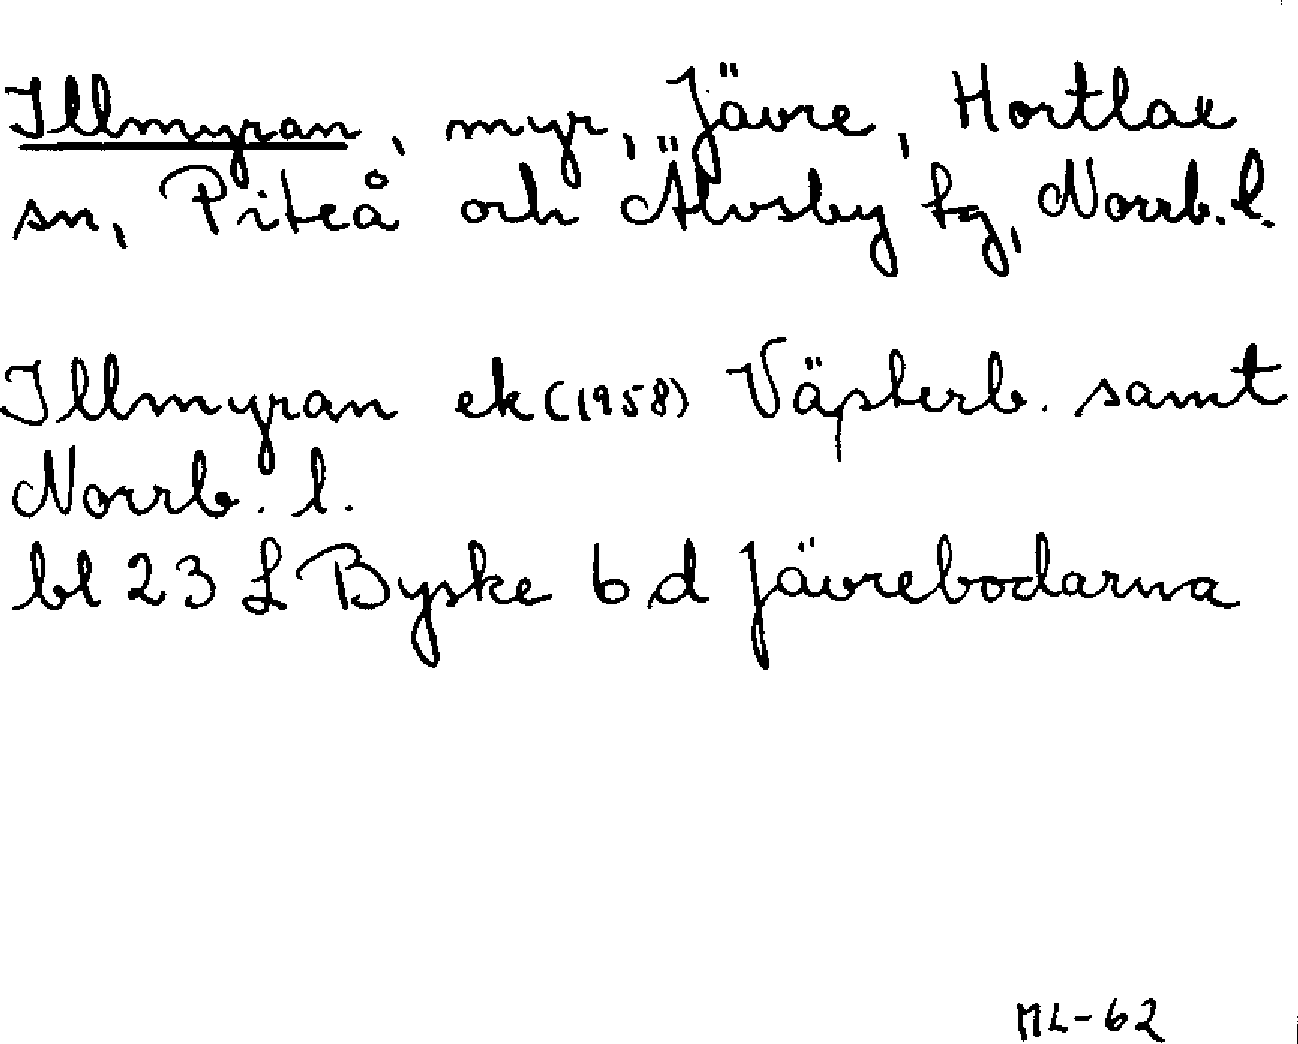 Illmyran, myr, Jävre, Hortlax
sn, Piteå och Älvsby tg, Norrb. l.
Illmyran ek (1958) Västerb. samt
Norrb. l.
bl 23 L Byske b d Jävrebodarna
ML-62